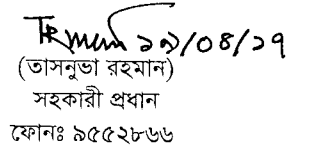 ১৯/০৪/১৭
(তাসনুভা রহমান)
সহকারী প্রধান
ফোনঃ ৯৫৫২৮৬৬